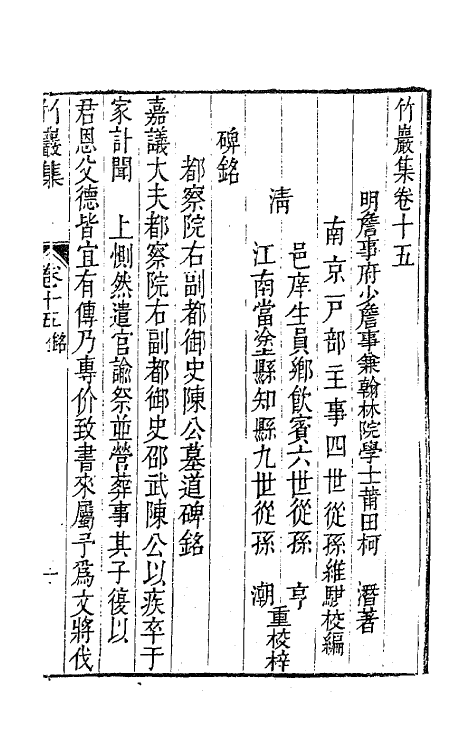 竹巖集卷十五
明詹事府少詹事兼翰林院學士莆田柯　潛著
南京戸部主事四世從孫維騏校編
清　邑庠生員鄉飲賓六世從孫　亨
江南當塗縣知縣九世從孫　潮
重校梓
碑銘
都察院右副都御史陳公墓道碑銘
嘉議大夫都察院右副都御史邵武陳公以疾卒于
家訃聞　上惻然遣官諭祭並營葬事其子復以
君恩父德皆宜有傳乃專价致書來屬予爲文將伐
竹巖集　卷十五　銘　一